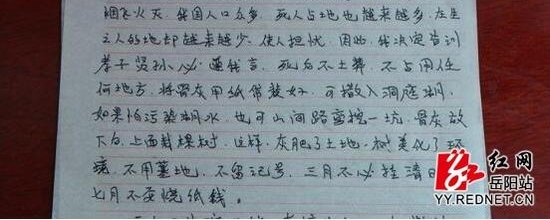 烟飞火灭，我国人口众多，死人占地也越来越多，在生
之人的地却越来越少，使人担忧，因此，我决定告训
孝子贤孙，必遵我言，死后不土葬，不占用任
何地方，将骨灰用纸帛装好，可撒入洞庭湖，
如果怕污染湖水，也可山间路旁挖一坑，骨灰放
下面，上面栽棵树，这样，灰肥了土地，树美化了环
境，不用墓地，不留记号，三月不必挂清
七月不要烧纸钱。
红网
岳阳站
YY.REDNET.CN